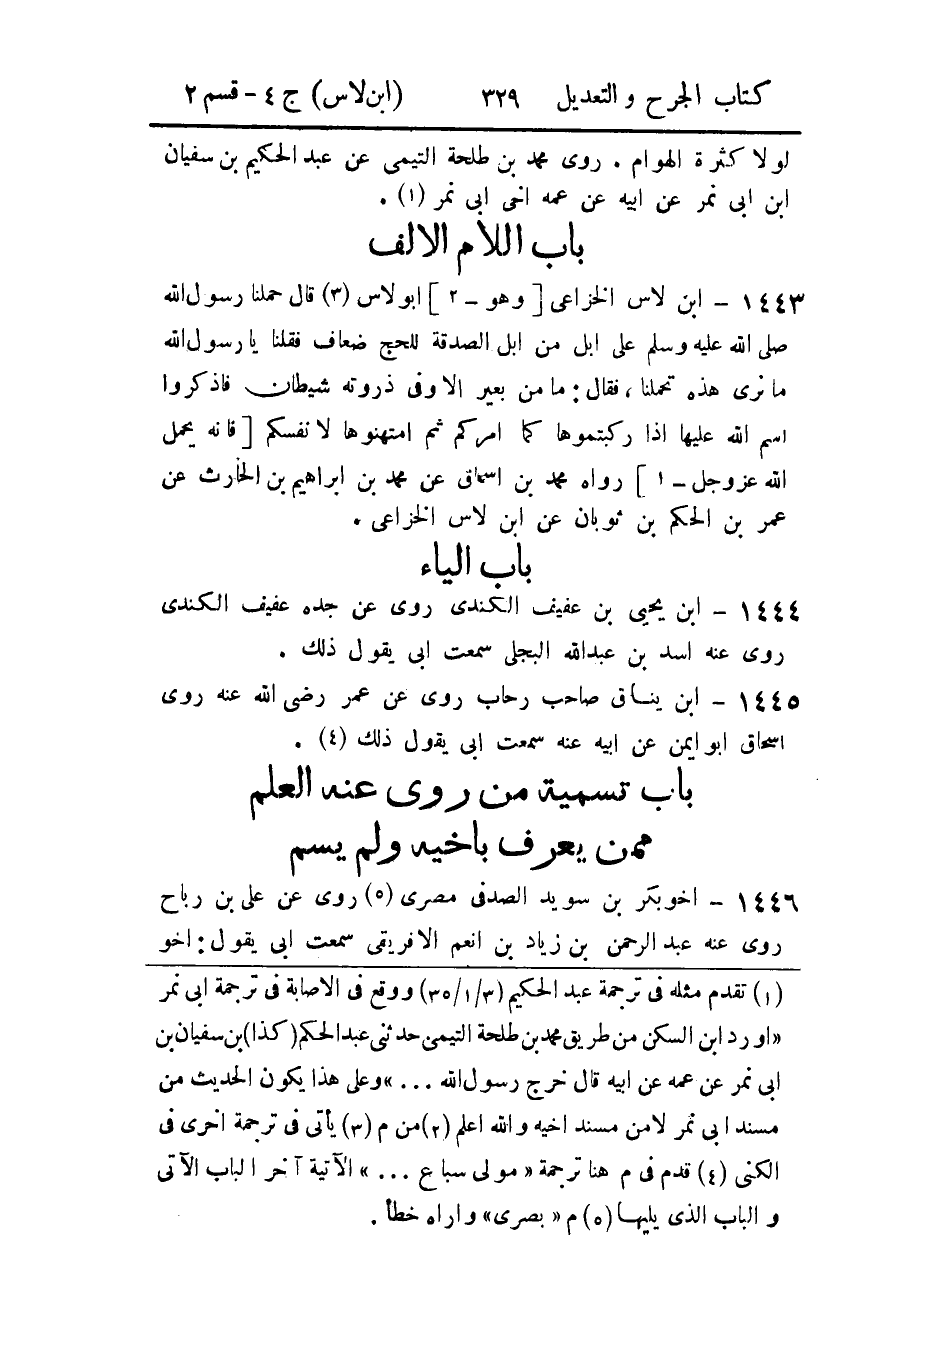 كتاب الجرح والتعديل ٣٢٩ (ابن لاس) ج ٤ - قسم ٢
لولا كثرة الهوام . روى محمد بن طلحة التيمى عن عبد الحكيم بن سفيان
ابن ابى نمر عن ابيه عن عمه اخى ابى نمر (١) .
باب اللام الالف
١٤٤٣ - ابن لاس الخزاعى [ وهو - ٢ ] ابو لاس (٣) قال حملنا رسول الله
صلى الله عليه وسلم على ابل من ابل الصدقة للحج ضعاف فقلنا يا رسول الله
ما نرى هذه تحملنا ، فقال : ما من بعير الا وفى ذروته شيطان فاذكروا
اسم الله عليها اذا ركبتموها كما امركم ثم امتهنوها لانفسكم [ فانه يحمل
الله عزوجل - ١ ] رواه محمد بن اسحاق عن محمد بن ابراهيم بن الحارث عن
عمر بن الحكم بن ثوبان عن ابن لاس الخزاعى .
باب الياء
١٤٤٤ - ابن يحيى بن عفيف الكندى روى عن جده عفيف الكندى
روى عنه اسد بن عبدالله البجلى سمعت ابى يقول ذلك .
١٤٤٥ - ابن يناق صاحب رحاب روى عن عمر رضى الله عنه روى
اسحاق ابو ايمن عن ابيه عنه سمعت ابى يقول ذلك (٤) .
باب تسمية من روى عنه العلم
ممن يعرف باخيه ولم يسم
١٤٤٦ - اخو بكر بن سويد الصدفى مصرى (٥) روى عن على بن رباح
روى عنه عبد الرحمن بن زياد بن انعم الافريقى سمعت ابى يقول : اخو
(١) تقدم مثله فى ترجمة عبد الحكيم (٣/١/٣٥) ووقع فى الاصابة فى ترجمة ابى نمر
«اورد ابن السكن من طريق محمد بن طلحة التيمى حدثنى عبد الحكم (كذا) بن سفيان بن
ابى نمر عن عمه عن ابيه قال خرج رسول الله ... » وعلى هذا يكون الحديث من
مسند ابى نمر لا من مسند اخيه والله اعلم (٢) من م (٣) يأتى فى ترجمة اخرى فى
الكنى (٤) قدم فى م هنا ترجمة « مولى سباع ... » الآتية آخر الباب الآتى
و الباب الذى يليها (٥) م « بصرى » واراه خطأ .